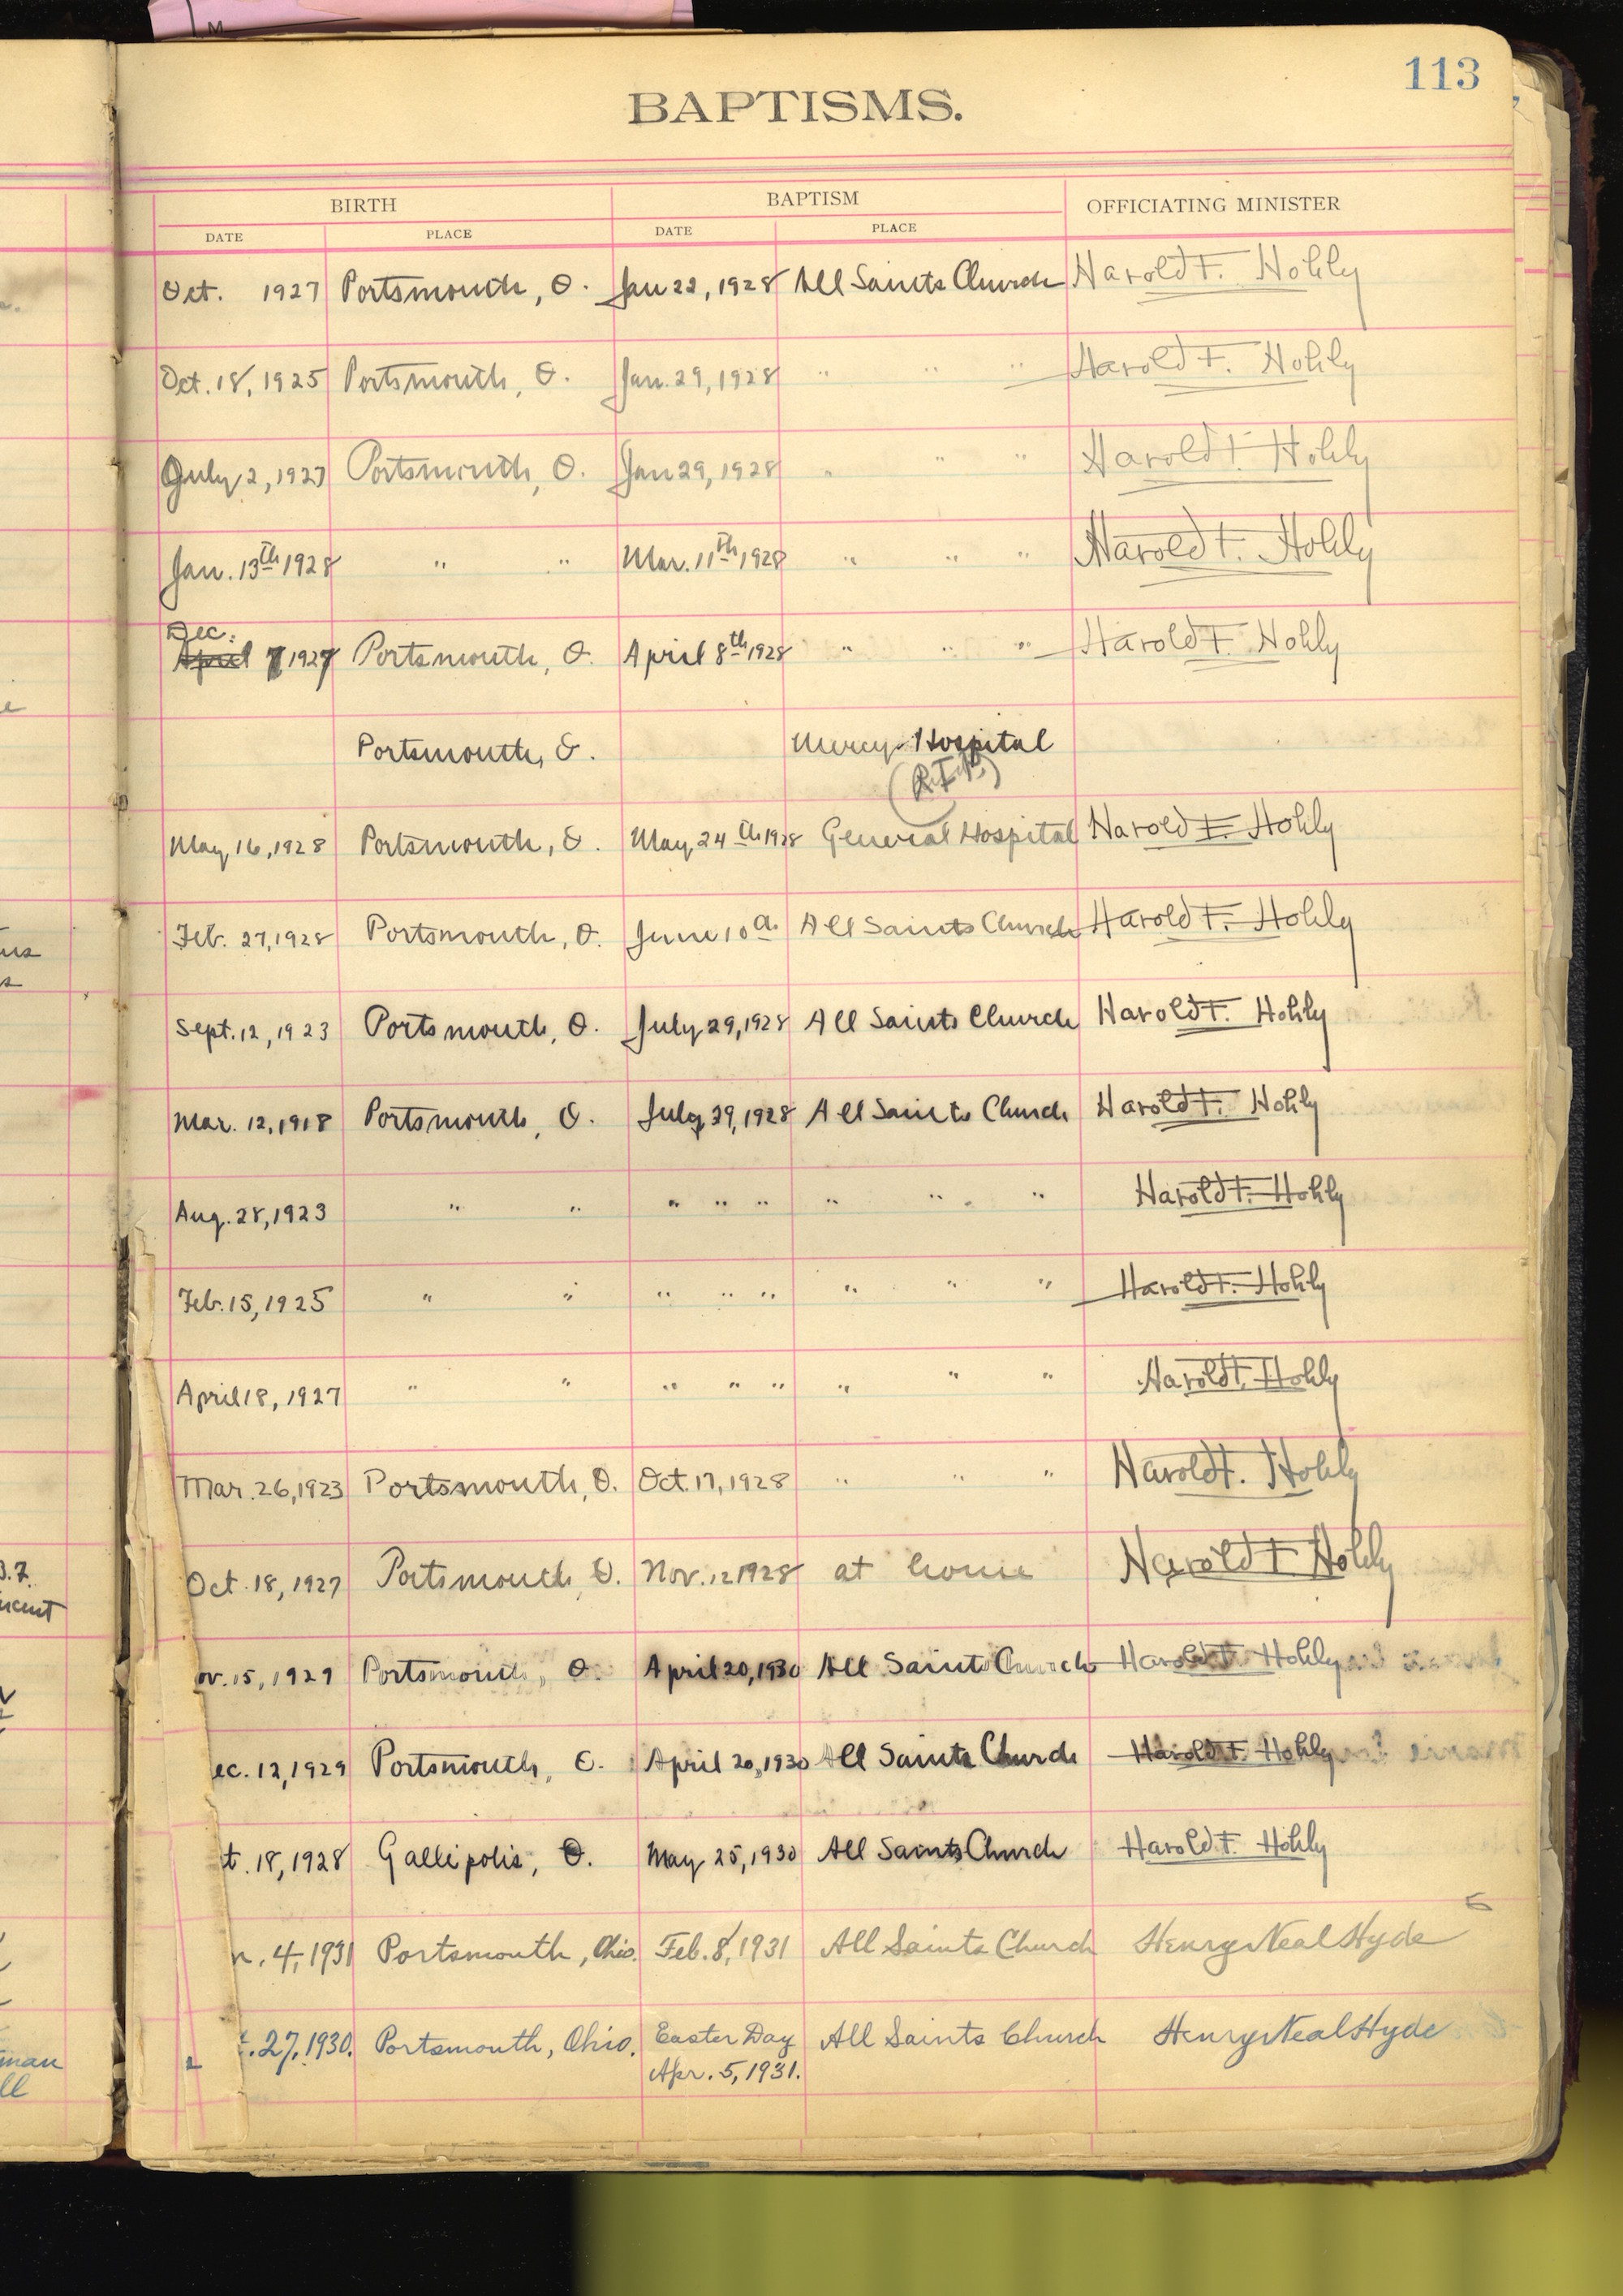 M
113
BAPTISMS.
BIRTH BAPTISM OFFICIATING MINISTER
DATE PLACE DATE PLACE
Oct. 1927 Portsmouth, O. Jan 22, 1928 All Saints Church Harold F. Hohly
Oct. 18, 1925 Portsmouth, O. Jan. 29, 1928 " " " Harold F. Hohly
July 2, 1927 Portsmouth, O. Jan 29, 1928 " " " Harold F. Hohly
Jan. 13th 1928 " " Mar. 11th 1928 " " " Harold F. Hohly
Dec.
April 7 1927 Portsmouth, O. April 8th 1928 " " " Harold F. Hohly
Portsmouth, O. Mercy Hospital
(R.I.P.)
May 16, 1928 Portsmouth, O. May 24th 1928 General Hospital Harold F. Hohly
Feb. 27, 1928 Portsmouth, O. June 10th All Saints Church Harold F. Hohly
Sept. 12, 1923 Portsmouth, O. July 29, 1928 All Saints Church Harold F. Hohly
Mar. 12, 1918 Portsmouth, O. July 29, 1928 All Saints Church Harold F. Hohly
Aug. 28, 1923 " " " " " " " " Harold F. Hohly
Feb. 15, 1925 " " " " " " " " Harold F. Hohly
April 18, 1927 " " " " " " " " Harold F. Hohly
Mar. 26, 1923 Portsmouth, O. Oct. 17, 1928 " " " Harold F. Hohly
Oct. 18, 1927 Portsmouth, O. Nov. 12 1928 at home Harold F. Hohly
ov. 15, 1929 Portsmouth, O. April 20, 1930 All Saints Church Harold F. Hohly
ec. 12, 1929 Portsmouth, O. April 20, 1930 All Saints Church Harold F. Hohly
t. 18, 1928 Gallipolis, O. May 25, 1930 All Saints Church Harold F. Hohly
n. 4, 1931 Portsmouth, Ohio. Feb. 8, 1931 All Saints Church Henry Neal Hyde
t. 27, 1930. Portsmouth, Ohio. Easter Day All Saints Church Henry Neal Hyde
Apr. 5, 1931.